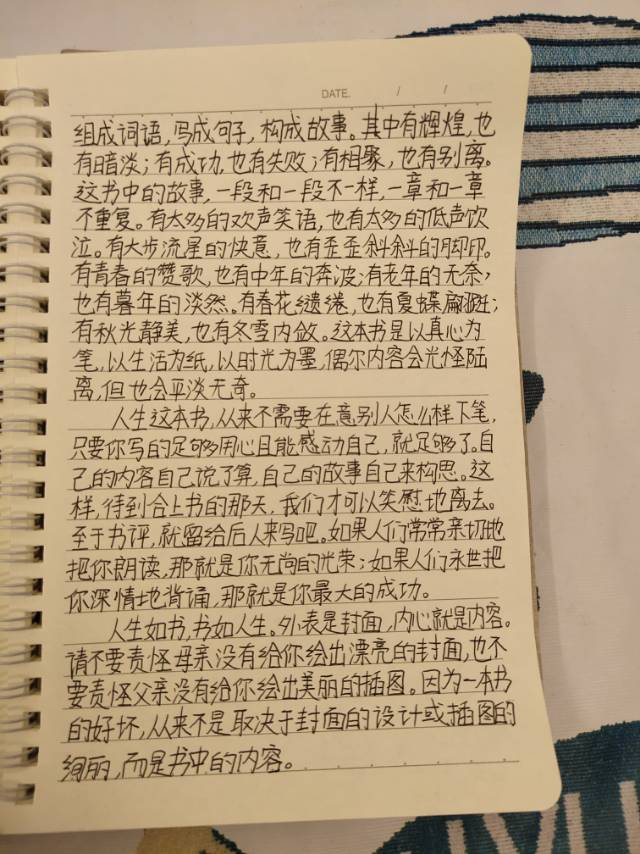 DATE. / /
组成词语,写成句子,构成故事。其中有辉煌,也
有暗淡;有成功,也有失败;有相聚,也有别离。
这书中的故事,一段和一段不一样,一章和一章
不重复。有太多的欢声笑语,也有太多的低声饮
泣。有大步流星的快意,也有歪歪斜斜的脚印。
有青春的赞歌,也有中年的奔波;有老年的无奈,
也有暮年的淡然。有春花缱绻,也有夏蝶翩跹;
有秋光静美,也有冬雪内敛。这本书是以真心为
笔,以生活为纸,以时光为墨,偶尔内容会光怪陆
离,但也会平淡无奇。
人生这本书,从来不需要在意别人怎么样下笔,
只要你写的足够用心且能感动自己,就足够了。自
己的内容自己说了算,自己的故事自己来构思。这
样,待到合上书的那天,我们才可以笑慰地离去。
至于书评,就留给后人来写吧。如果人们常常亲切地
把你朗读,那就是你无尚的光荣;如果人们永世把
你深情地背诵,那就是你最大的成功。
人生如书,书如人生。外表是封面,内心就是内容。
请不要责怪母亲没有给你绘出漂亮的封面,也不
要责怪父亲没有给你绘出美丽的插图。因为一本书
的好坏,从来不是取决于封面的设计或插图的
绚丽,而是书中的内容。